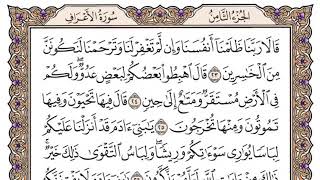 سُورَةُ الأَعْرَافِ
الجُزْءُ الثَّامِنُ
قَالَا رَبَّنَا ظَلَمْنَا أَنفُسَنَا وَإِن لَّمْ تَغْفِرْ لَنَا وَتَرْحَمْنَا لَنَكُونَنَّ
مِنَ الْخَاسِرِينَ ٢٣ قَالَ اهْبِطُوا بَعْضُكُمْ لِبَعْضٍ عَدُوٌّ وَلَكُمْ
فِي الْأَرْضِ مُسْتَقَرٌّ وَمَتَاعٌ إِلَىٰ حِينٍ ٢٤ قَالَ فِيهَا تَحْيَوْنَ وَفِيهَا
تَمُوتُونَ وَمِنْهَا تُخْرَجُونَ ٢٥ يَا بَنِي آدَمَ قَدْ أَنزَلْنَا عَلَيْكُمْ
لِبَاسًا يُوَارِي سَوْآتِكُمْ وَرِيشًا وَلِبَاسُ التَّقْوَىٰ ذَٰلِكَ خَيْرٌ